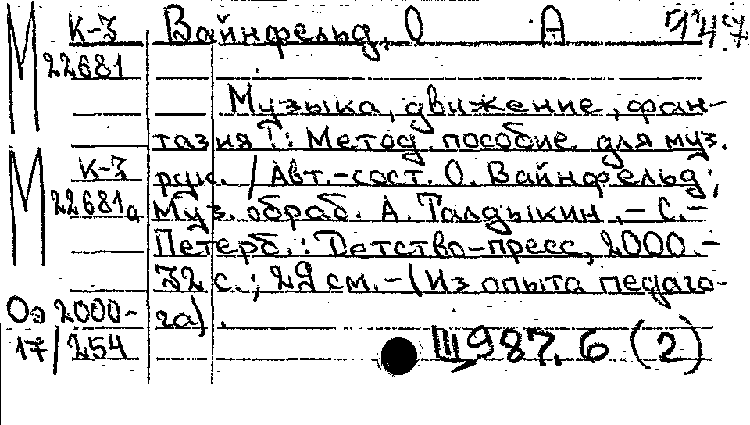 М К-3 Вайнфельд, О А
22681
Музыка, движение, фан-
тазия!: Метод. пособие для муз.
М К-3 рук. / Авт.-сост. О. Вайнфельд;
22681а Муз. обраб. А. Талдыкин. – С.-
Петерб.: Детство-пресс, 2000. –
32 с.; 29 см. – (Из опыта педаго-
Оэ 2000- га).
17/254 Щ987.6 (2)